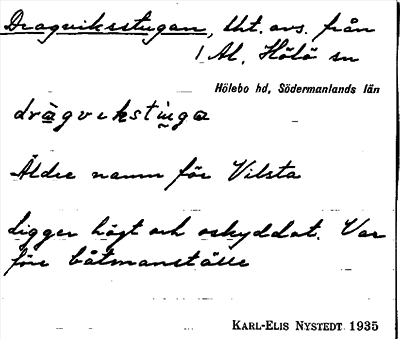 Dragviksstugan, lht. avs. från
1 Al, Hölö sn
Hölebo hd, Södermanlands län
dràgvekstùga
Äldre namn för Vilsta
Ligger högt och oskyddat. Var
förr båtmanställe
KARL-ELIS NYSTEDT 1935